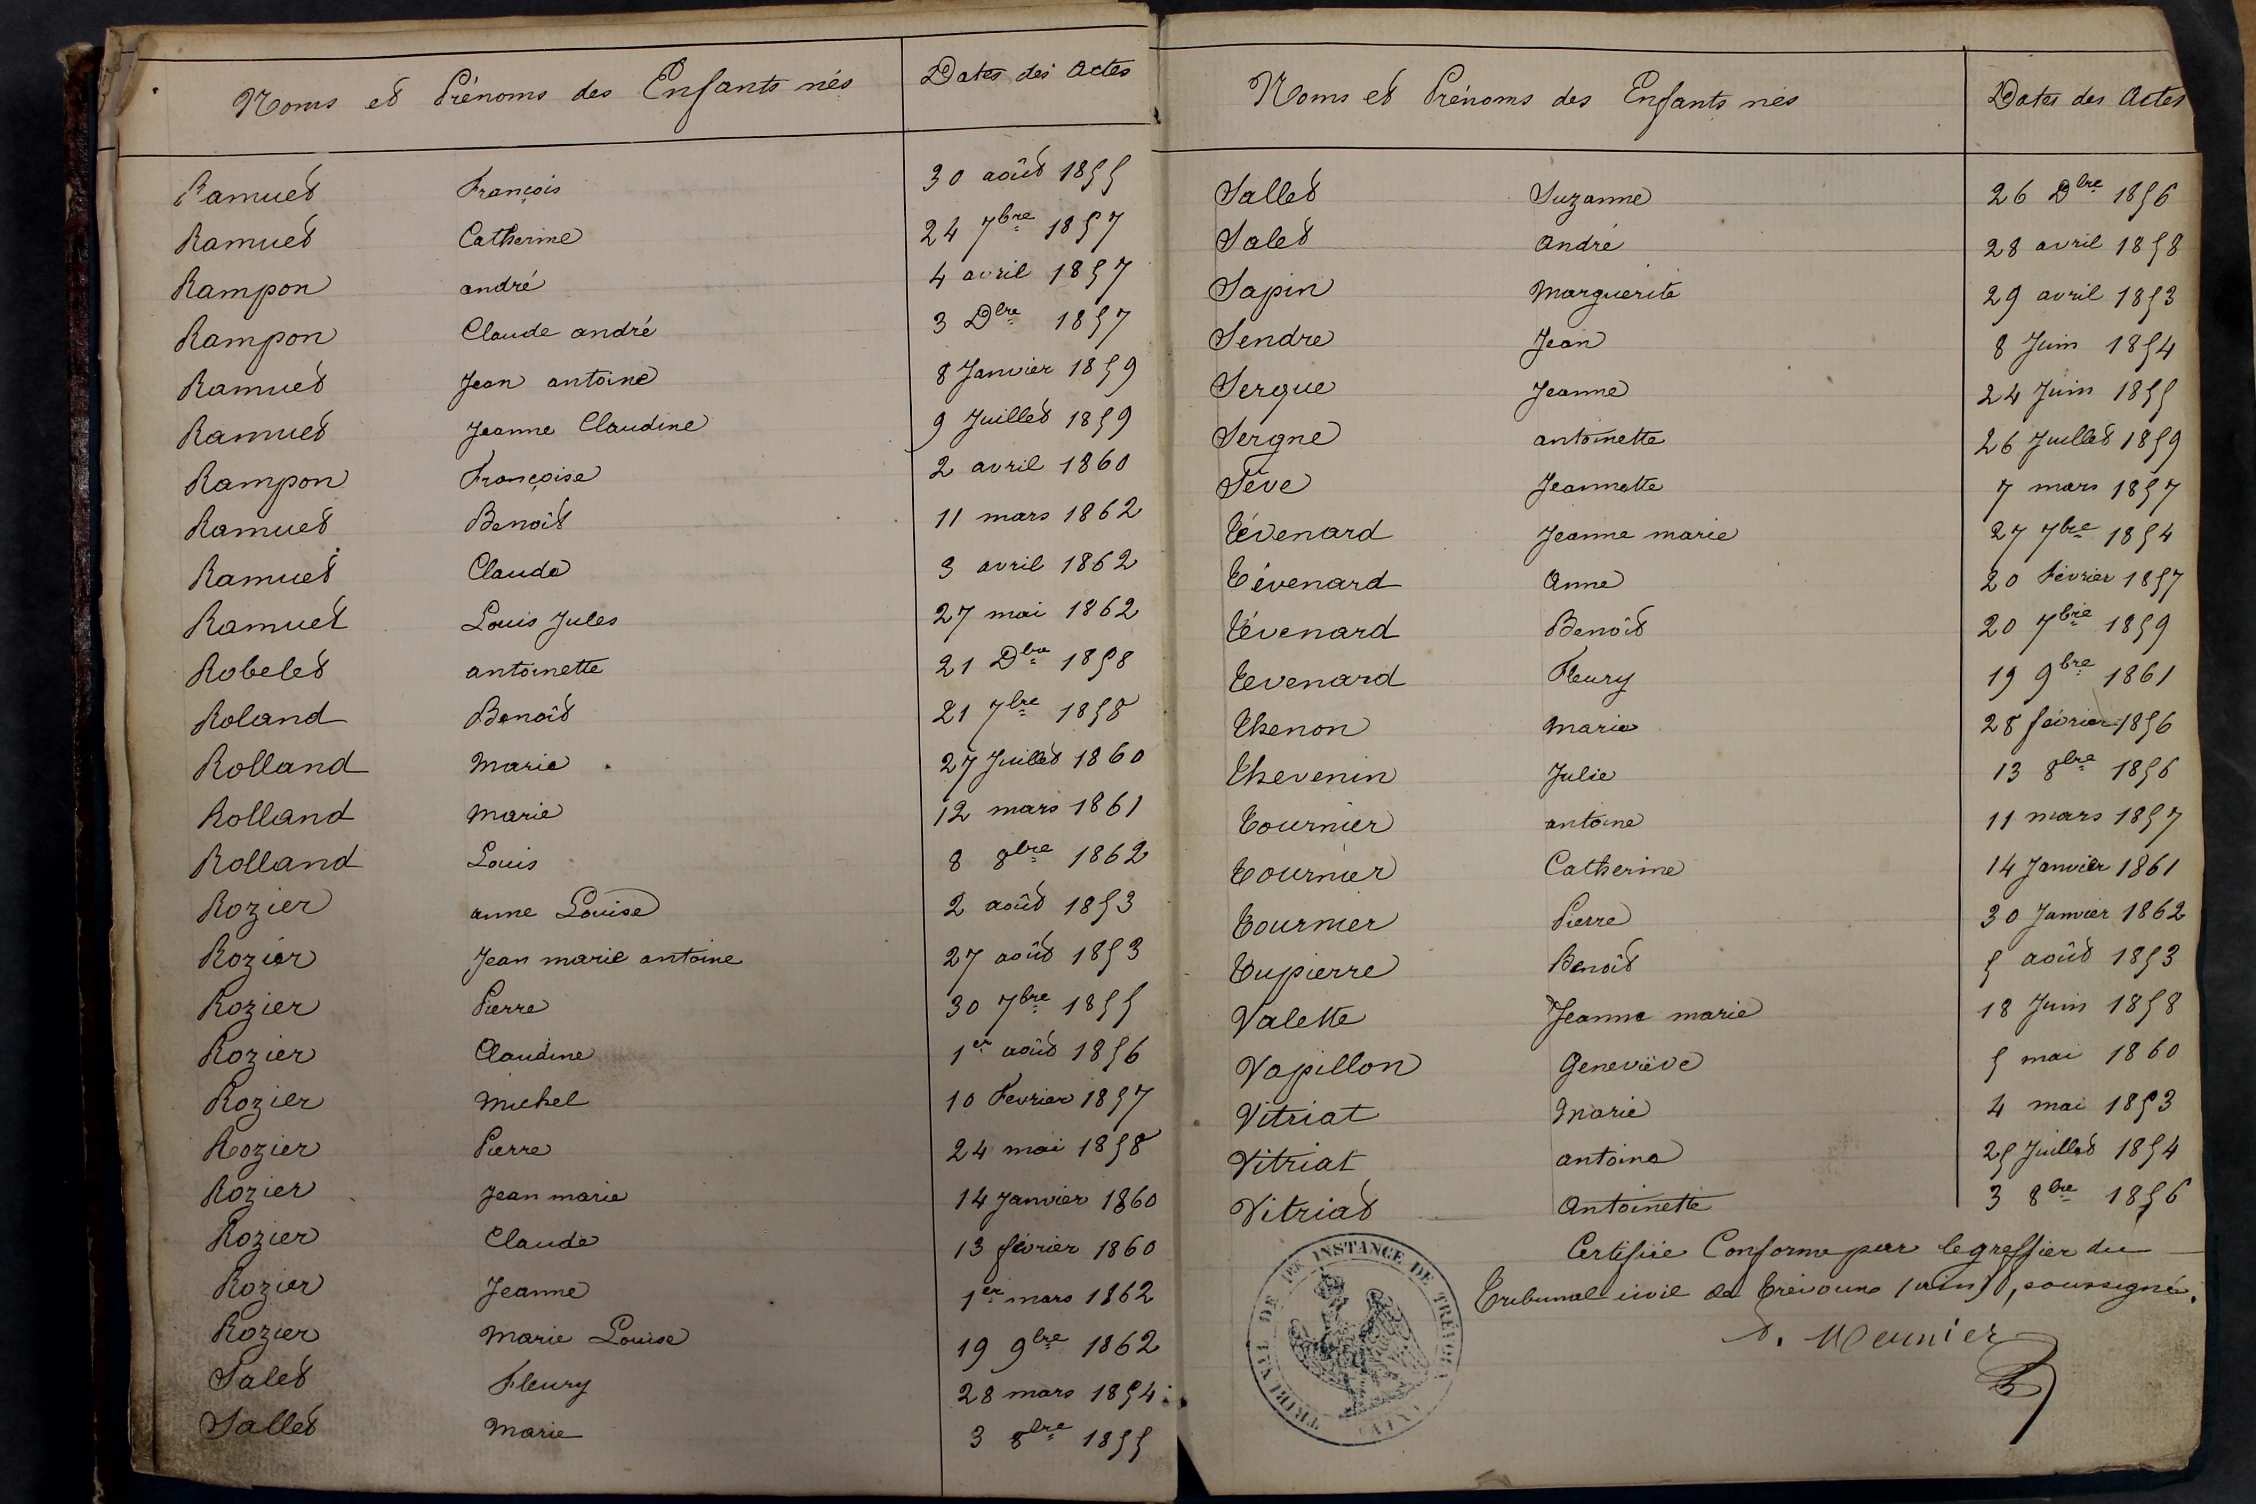 Noms et Prénoms des Enfants nés Dates des Actes
Ramuet François 30 août 1855
Ramuet Catherine 24 7bre 1857
Rampon andré 4 avril 1857
Rampon Claude andré 3 Dbre 1857
Ramuet Jean antoine 8 Janvier 1859
Ramuet Jeanne Claudine 9 Juillet 1859
Rampon Françoise 2 avril 1860
Ramuet Benoit 11 mars 1862
Ramuet Claude 3 avril 1862
Ramuet Louis Jules 27 mai 1862
Robelet antoinette 21 Dbre 1858
Roland Benoît 21 7bre 1858
Rolland Marie 27 Juillet 1860
Rolland Marie 12 mars 1861
Rolland Louis 8 8bre 1862
Rozier anne Louise 2 août 1853
Rozier Jean marie antoine 27 août 1853
Rozier Pierre 30 7bre 1855
Rozier Claudine 1er août 1856
Rozier Michel 10 Fevrier 1857
Rozier Pierre 24 mai 1858
Rozier Jean marie 14 Janvier 1860
Rozier Claude 13 février 1860
Rozier Jeanne 1er mars 1862
Rozier Marie Louise 19 9bre 1862
Salet Fleury 28 mars 1854
Sallet Marie 3 8bre 1855
Noms et Prénoms des Enfants nés Dates des Actes
Sallet Suzanne 26 Dbre 1856
Salet André 28 avril 1858
Sapin Marguerite 29 avril 1853
Sendre Jean 8 Juin 1854
Sergue Jeanne 24 Juin 1855
Sergne antoinette 26 Juillet 1859
Sève Jeannette 7 mars 1857
Tévenard Jeanne marie 27 7bre 1854
Tévenard Anne 20 Février 1857
Tévenard Benoît 20 7bre 1859
Tevenard Fleury 19 9bre 1861
Thenon Marie 28 février 1856
Thevenin Julie 13 8bre 1856
Tournier antoine 11 mars 1857
Tournier Catherine 14 Janvier 1861
Tournier Pierre 30 Janvier 1862
Tupierre Benoît 5 août 1853
Valette Jeanne marie 18 Juin 1858
Vapillon Geneviève 5 mai 1860
Vitriat Marie 4 mai 1853
Vitriat antoine 25 Juillet 1854
Vitriat Antoinette 3 8bre 1856
Certifiée Conforme par le greffier du
Tribunal civil de Trévoux (ain), soussigné.
Meunier
TRIBUNAL DE 1ER INSTANCE DE TRÉVOUX (AIN)